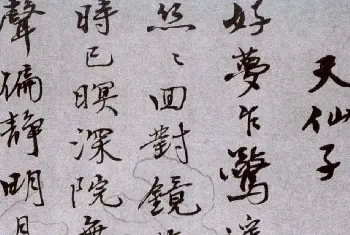 天仙子
好夢乍驚
回對鏡
時已暝深院無
聲偏靜明月